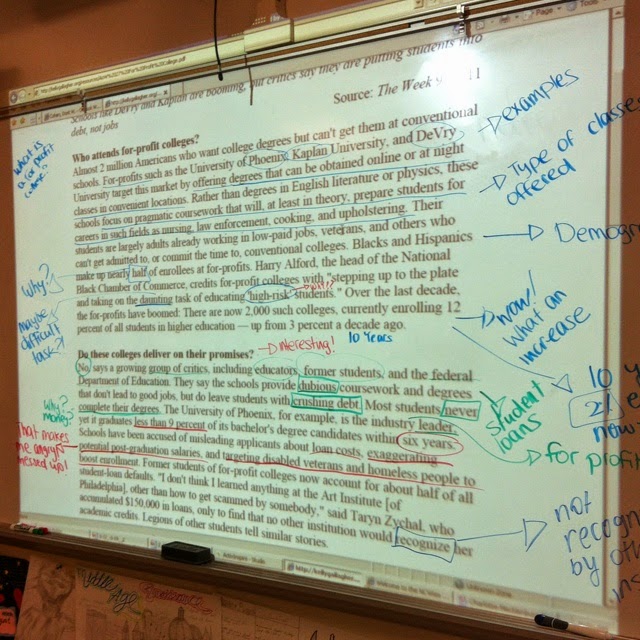 Schools like DeVry and Kaplan are booming, but critics say they are putting students into
debt, not jobs
Source: The Week
11
Who attends for-profit colleges?
Almost 2 million Americans who want college degrees but can't get them at conventional
schools. For-profits such as the University of Phoenix, Kaplan University, and DeVry
University target this market by offering degrees that can be obtained online or at night
classes in convenient locations. Rather than degrees in English literature or physics, these
schools focus on pragmatic coursework that will, at least in theory, prepare students for
careers in such fields as nursing, law enforcement, cooking, and upholstering. Their
students are largely adults already working in low-paid jobs, veterans, and others who
can't get admitted to, or commit the time to, conventional colleges. Blacks and Hispanics
make up nearly half of enrollees at for-profits. Harry Alford, the head of the National
Black Chamber of Commerce, credits for-profit colleges with "stepping up to the plate
and taking on the daunting task of educating high-risk students." Over the last decade,
the for-profits have boomed: There are now 2,000 such colleges, currently enrolling 12
percent of all students in higher education — up from 3 percent a decade ago.
Do these colleges deliver on their promises?
No, says a growing group of critics, including educators, former students, and the federal
Department of Education. They say the schools provide dubious coursework and degrees
that don't lead to good jobs, but do leave students with crushing debt. Most students never
complete their degrees. The University of Phoenix, for example, is the industry leader,
yet it graduates less than 9 percent of its bachelor's degree candidates within six years.
Schools have been accused of misleading applicants about loan costs, exaggerating
potential post-graduation salaries, and targeting disabled veterans and homeless people to
boost enrollment. Former students of for-profit colleges now account for about half of all
student-loan defaults. "I don't think I learned anything at the Art Institute [of
Philadelphia], other than how to get scammed by somebody," said Taryn Zychal, who
accumulated $150,000 in loans, only to find that no other institution would recognize her
academic credits. Legions of other students tell similar stories.
what is
a for profit
college?
Why?
maybe
difficult
task?
Why?
Money?
That makes
me angry!
messed up!
examples
Type of classes
offered
Demogr
Wow!
What an
increase
Interesting!
10 Years
10
21
now
student
loans
for profit
not
recogn
by oth
ins